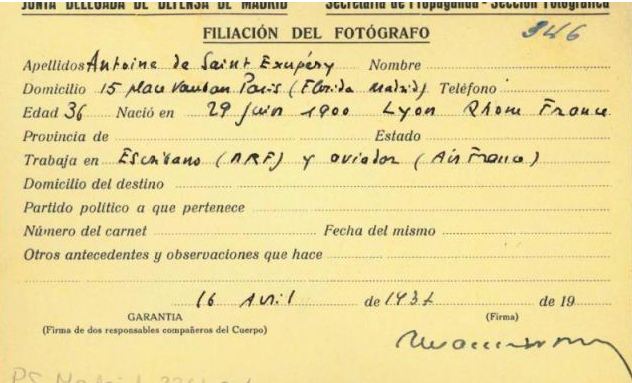 JUNTA DELEGADA DE DEFENSA DE MADRID Secretaría de Propaganda - Sección Fotográfica
FILIACIÓN DEL FOTÓGRAFO 346
Apellidos Antoine de Saint Exupéry Nombre
Domicilio 15 place Vauban Paris (Florida Madrid) Teléfono
Edad 36 Nació en 29 juin 1900 Lyon Rhone France
Provincia de Estado
Trabaja en Escribano (ARF) y aviador (Air France)
Domicilio del destino
Partido político a que pertenece
Número del carnet Fecha del mismo
Otros antecedentes y observaciones que hace
16 Avril de 1937 de 19
GARANTIA (Firma)
(Firma de dos responsables compañeros del Cuerpo)
PS Madrid